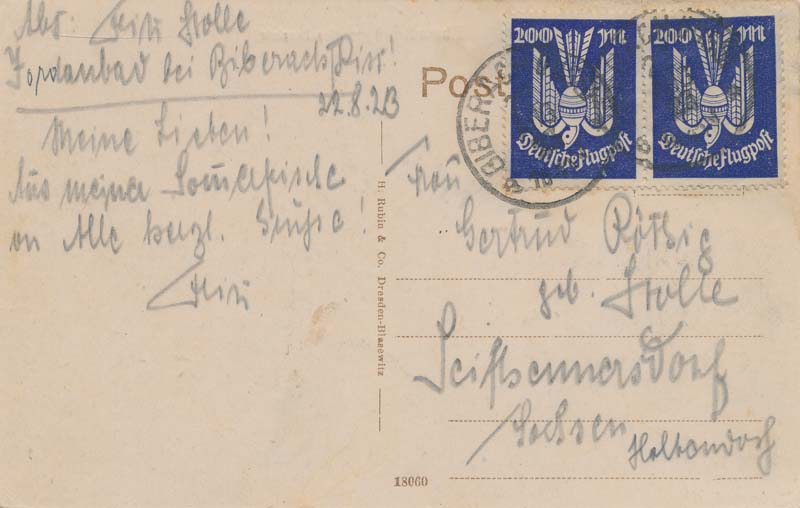 Abs: Fritz Stolle
Jordanbad bei Biberach/Riss!
22.8.23
Meine Lieben!
Aus meiner Sommerfrische
an Alle herzl. Grüße!
Fritz
H. Rubin & Co. Dresden-Blasewitz
18060
Post
200 M
Deutsche Flugpost
200 M
Deutsche Flugpost
BIBERACH
Frau
Gertrud Röthig
geb. Stolle
Seifhennersdorf
Sachsen